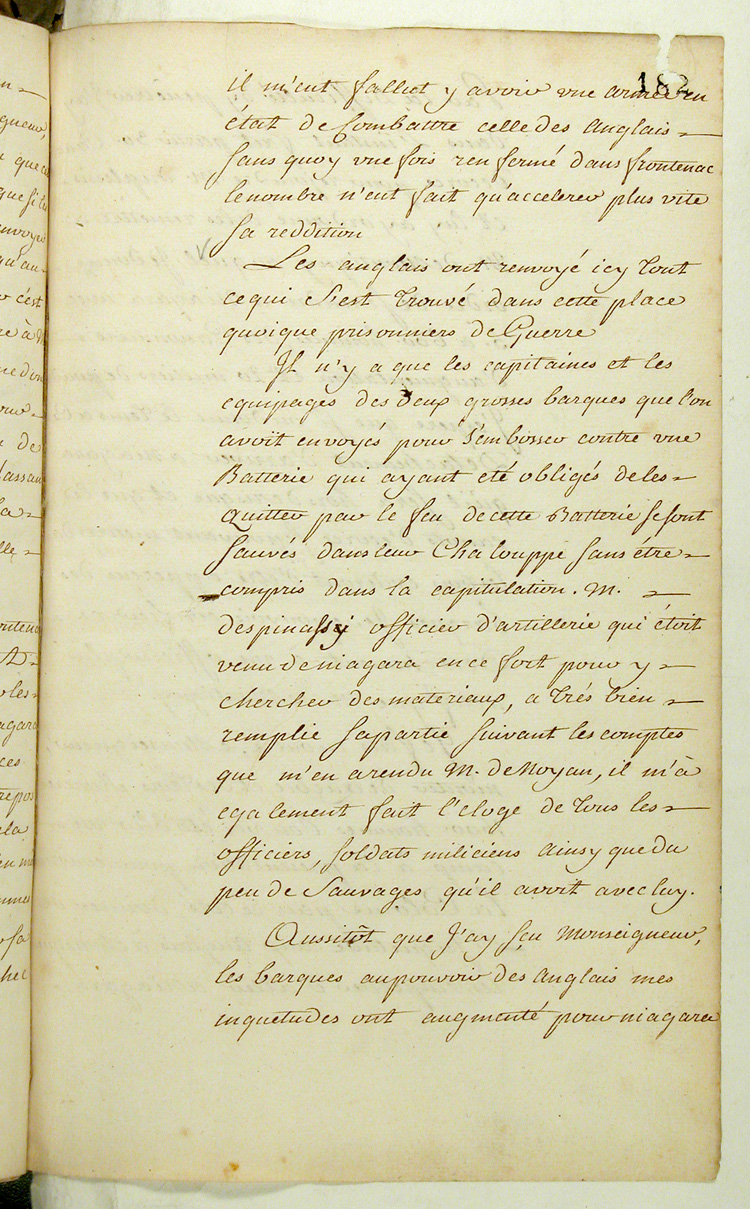 182
il m'eut fallut y avoir une armée en
état de Combattre celle des anglais
sans quoy une fois renfermé dans frontenac
le nombre n'eut fait qu'accelerer plus vite
sa reddition
Les anglais ont renvoyé icy tout
ce qui s'est trouvé dans cette place
quoique prisonniers de Guerre
Il n'y a que les capitaines et les
equipages des deux grosses barques que l'on
avoit envoyés pour s'embosser contre une
Batterie qui ayant eté obligés de les
quitter par le feu de cette Batterie se sont
sauvés dans leur Chalouppe sans étre
compris dans la capitulation. M.
despinassy officier d'artillerie qui étoit
venu de niagara en ce fort pour y
chercher des materiaux, a trés bien
remplie sa partie suivant les comptes
que m'en a rendu M. de Noyan, il m'à
egalement fait l'eloge de tous les
officiers, soldats miliciens ainsy que du
peu de Sauvages qu'il avoit avec luy.
Aussitôt que J'ay sçu Monseigneur,
les barques au pouvoir des anglais mes
inquetudes ont augmenté pour niagara